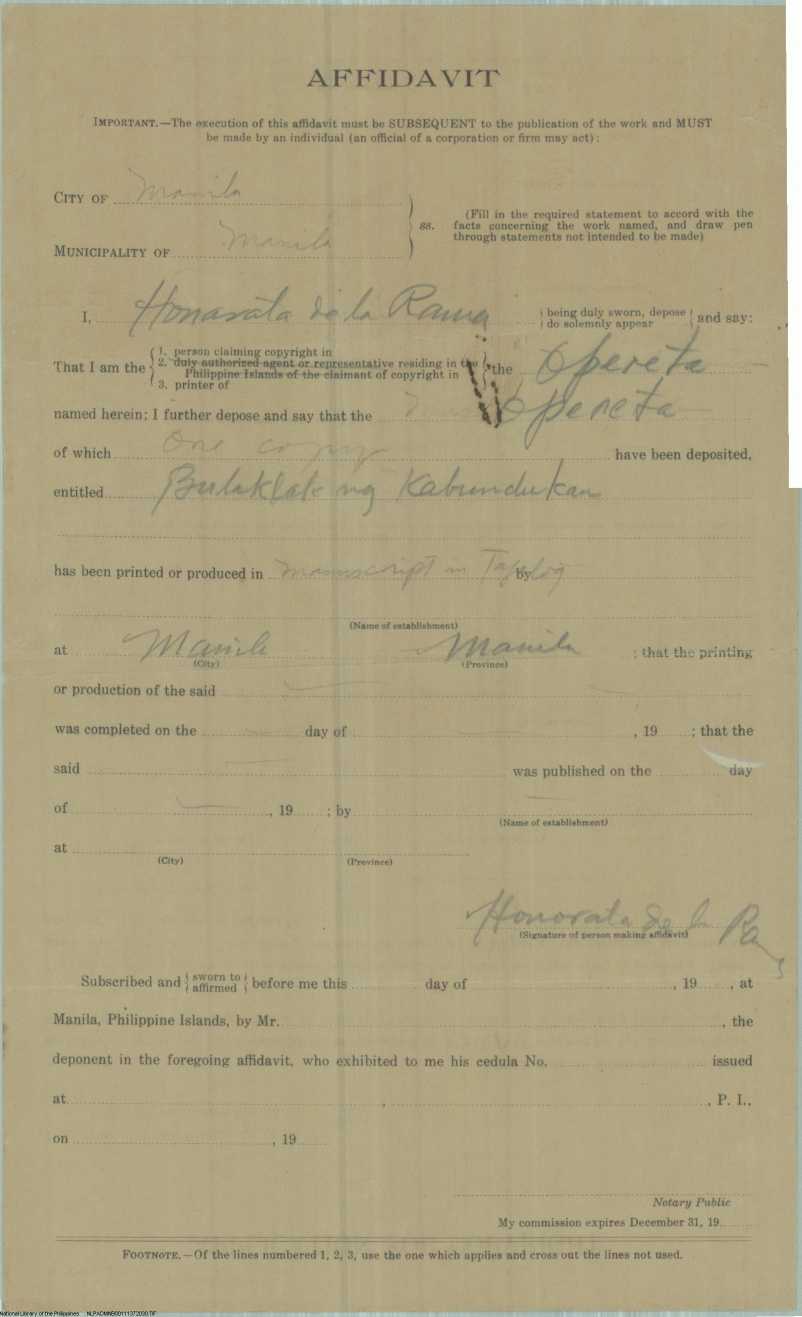 AFFIDAVIT
IMPORTANT.—The execution of this affidavit must be SUBSEQUENT to the publication of the work and MUST
be made by an individual (an official of a corporation or firm may act):
CITY OF Manila
MUNICIPALITY OF Manila
ss.
(Fill in the required statement to accord with the
facts concerning the work named, and draw pen
through statements not intended to be made)
I, Honarata de la Rama { being duly sworn, depose / do solemnly appear } and say:
That I am the { 1. person claiming copyright in
2. duly authorized agent or representative residing in the
Philippine Islands of the claimant of copyright in
3. printer of } the Opereta
named herein; I further depose and say that the Opereta
of which One copy have been deposited,
entitled Bulaklak ng Kabundukan
has been printed or produced in manuscript in Tagalog by
(Name of establishment)
at Manila Manila ; that the printing
(City) (Province)
or production of the said
was completed on the day of , 19 ; that the
said was published on the day
of , 19 ; by
(Name of establishment)
at
(City) (Province)
Honorata de la Ra
(Signature of person making affidavit)
Subscribed and { sworn to / affirmed } before me this day of , 19 , at
Manila, Philippine Islands, by Mr. , the
deponent in the foregoing affidavit, who exhibited to me his cedula No. issued
at , , P. I.,
on , 19
Notary Public
My commission expires December 31, 19
FOOTNOTE.—Of the lines numbered 1, 2, 3, use the one which applies and cross out the lines not used.
National Library of the Philippines NLPADMNB00111372030.TIF